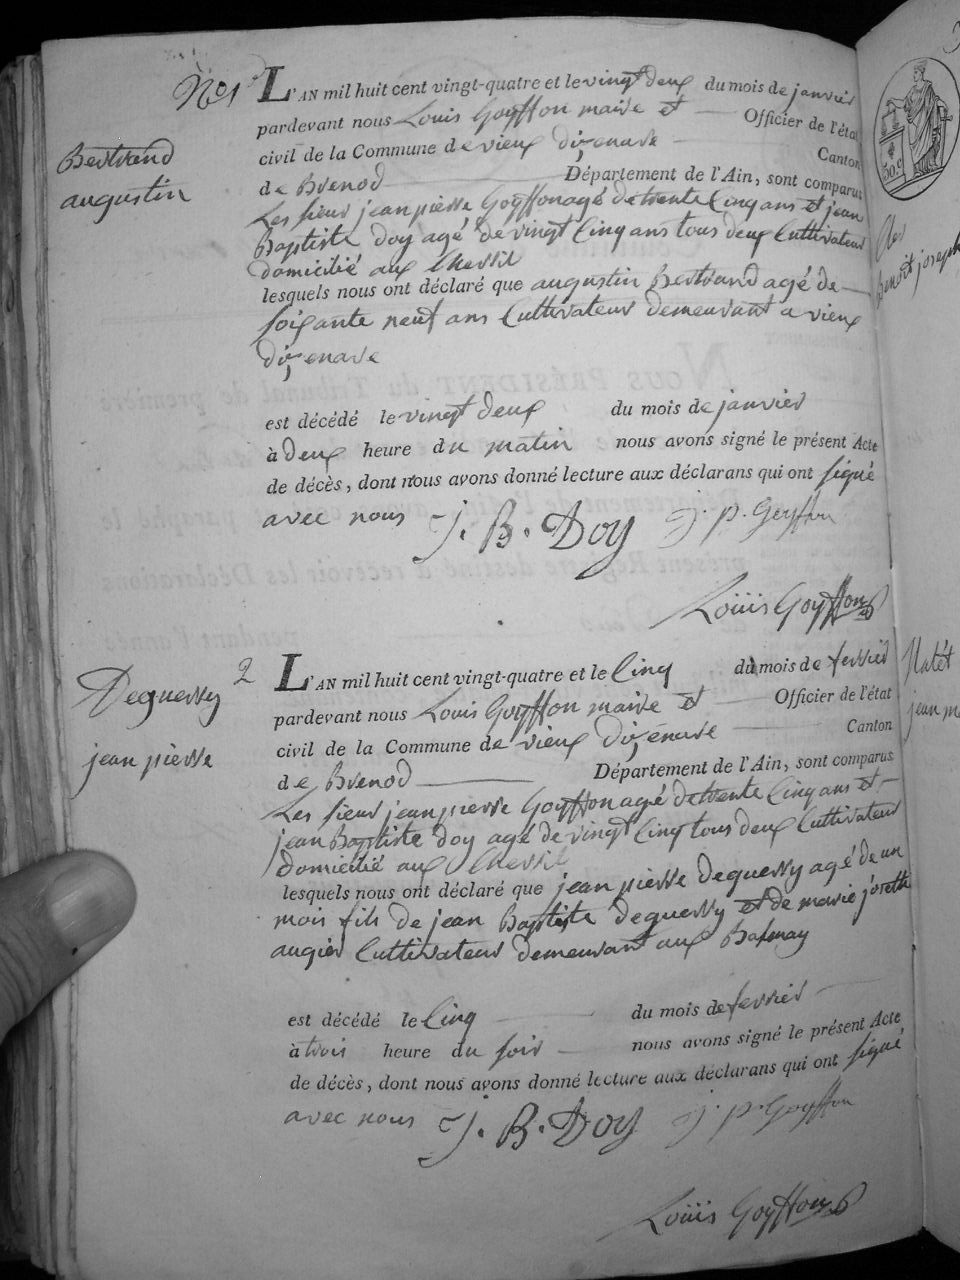 N.º 1
Bertrand
augustin
L'AN mil huit cent vingt-quatre et le vingt deux du mois de janvier
pardevant nous Louis Goyffon maire et Officier de l'état
civil de la Commune de vieux dizenave Canton
de Brenod Département de l'Ain, sont comparus
Les sieur jean pierre Goyffon agé de trente Cinq ans et jean
Baptiste Doy agé de vingt Cinq ans tous deux Cultivateur
domicilié aux
lesquels nous ont déclaré que augustin Bertrand agé de
soixante neuf ans Cultivateur demeurant a vieux
dizenave
est décédé le vingt deux du mois de janvier
à deux heure du matin nous avons signé le présent Acte
de décès, dont nous avons donné lecture aux déclarans qui ont signé
avec nous J. B. Doy j p. Goyffon
Loüis Goyffon
2
Deguerry
jean pierre
L'AN mil huit cent vingt-quatre et le Cinq du mois de fevrier
pardevant nous Louis Goyffon maire et Officier de l'état
civil de la Commune de vieux dizenave Canton
de Brenod Département de l'Ain, sont comparus
Les sieur jean pierre Goyffon agé de trente Cinq ans et
jean Baptiste Doy agé de vingt Cinq tous deux Cultivateur
Domicilié aux
lesquels nous ont déclaré que jean pierre Deguerry agé de un
mois fils de jean Baptiste Deguerry et de marie josette
augier Cultivateur demeurant aux
est décédé le Cinq du mois de fevrier
à trois heure du soir nous avons signé le présent Acte
de décès, dont nous avons donné lecture aux déclarans qui ont signé
avec nous J. B. Doy j. p. Goyffon
Loüis Goyffon
50 c
benoit joseph
jean